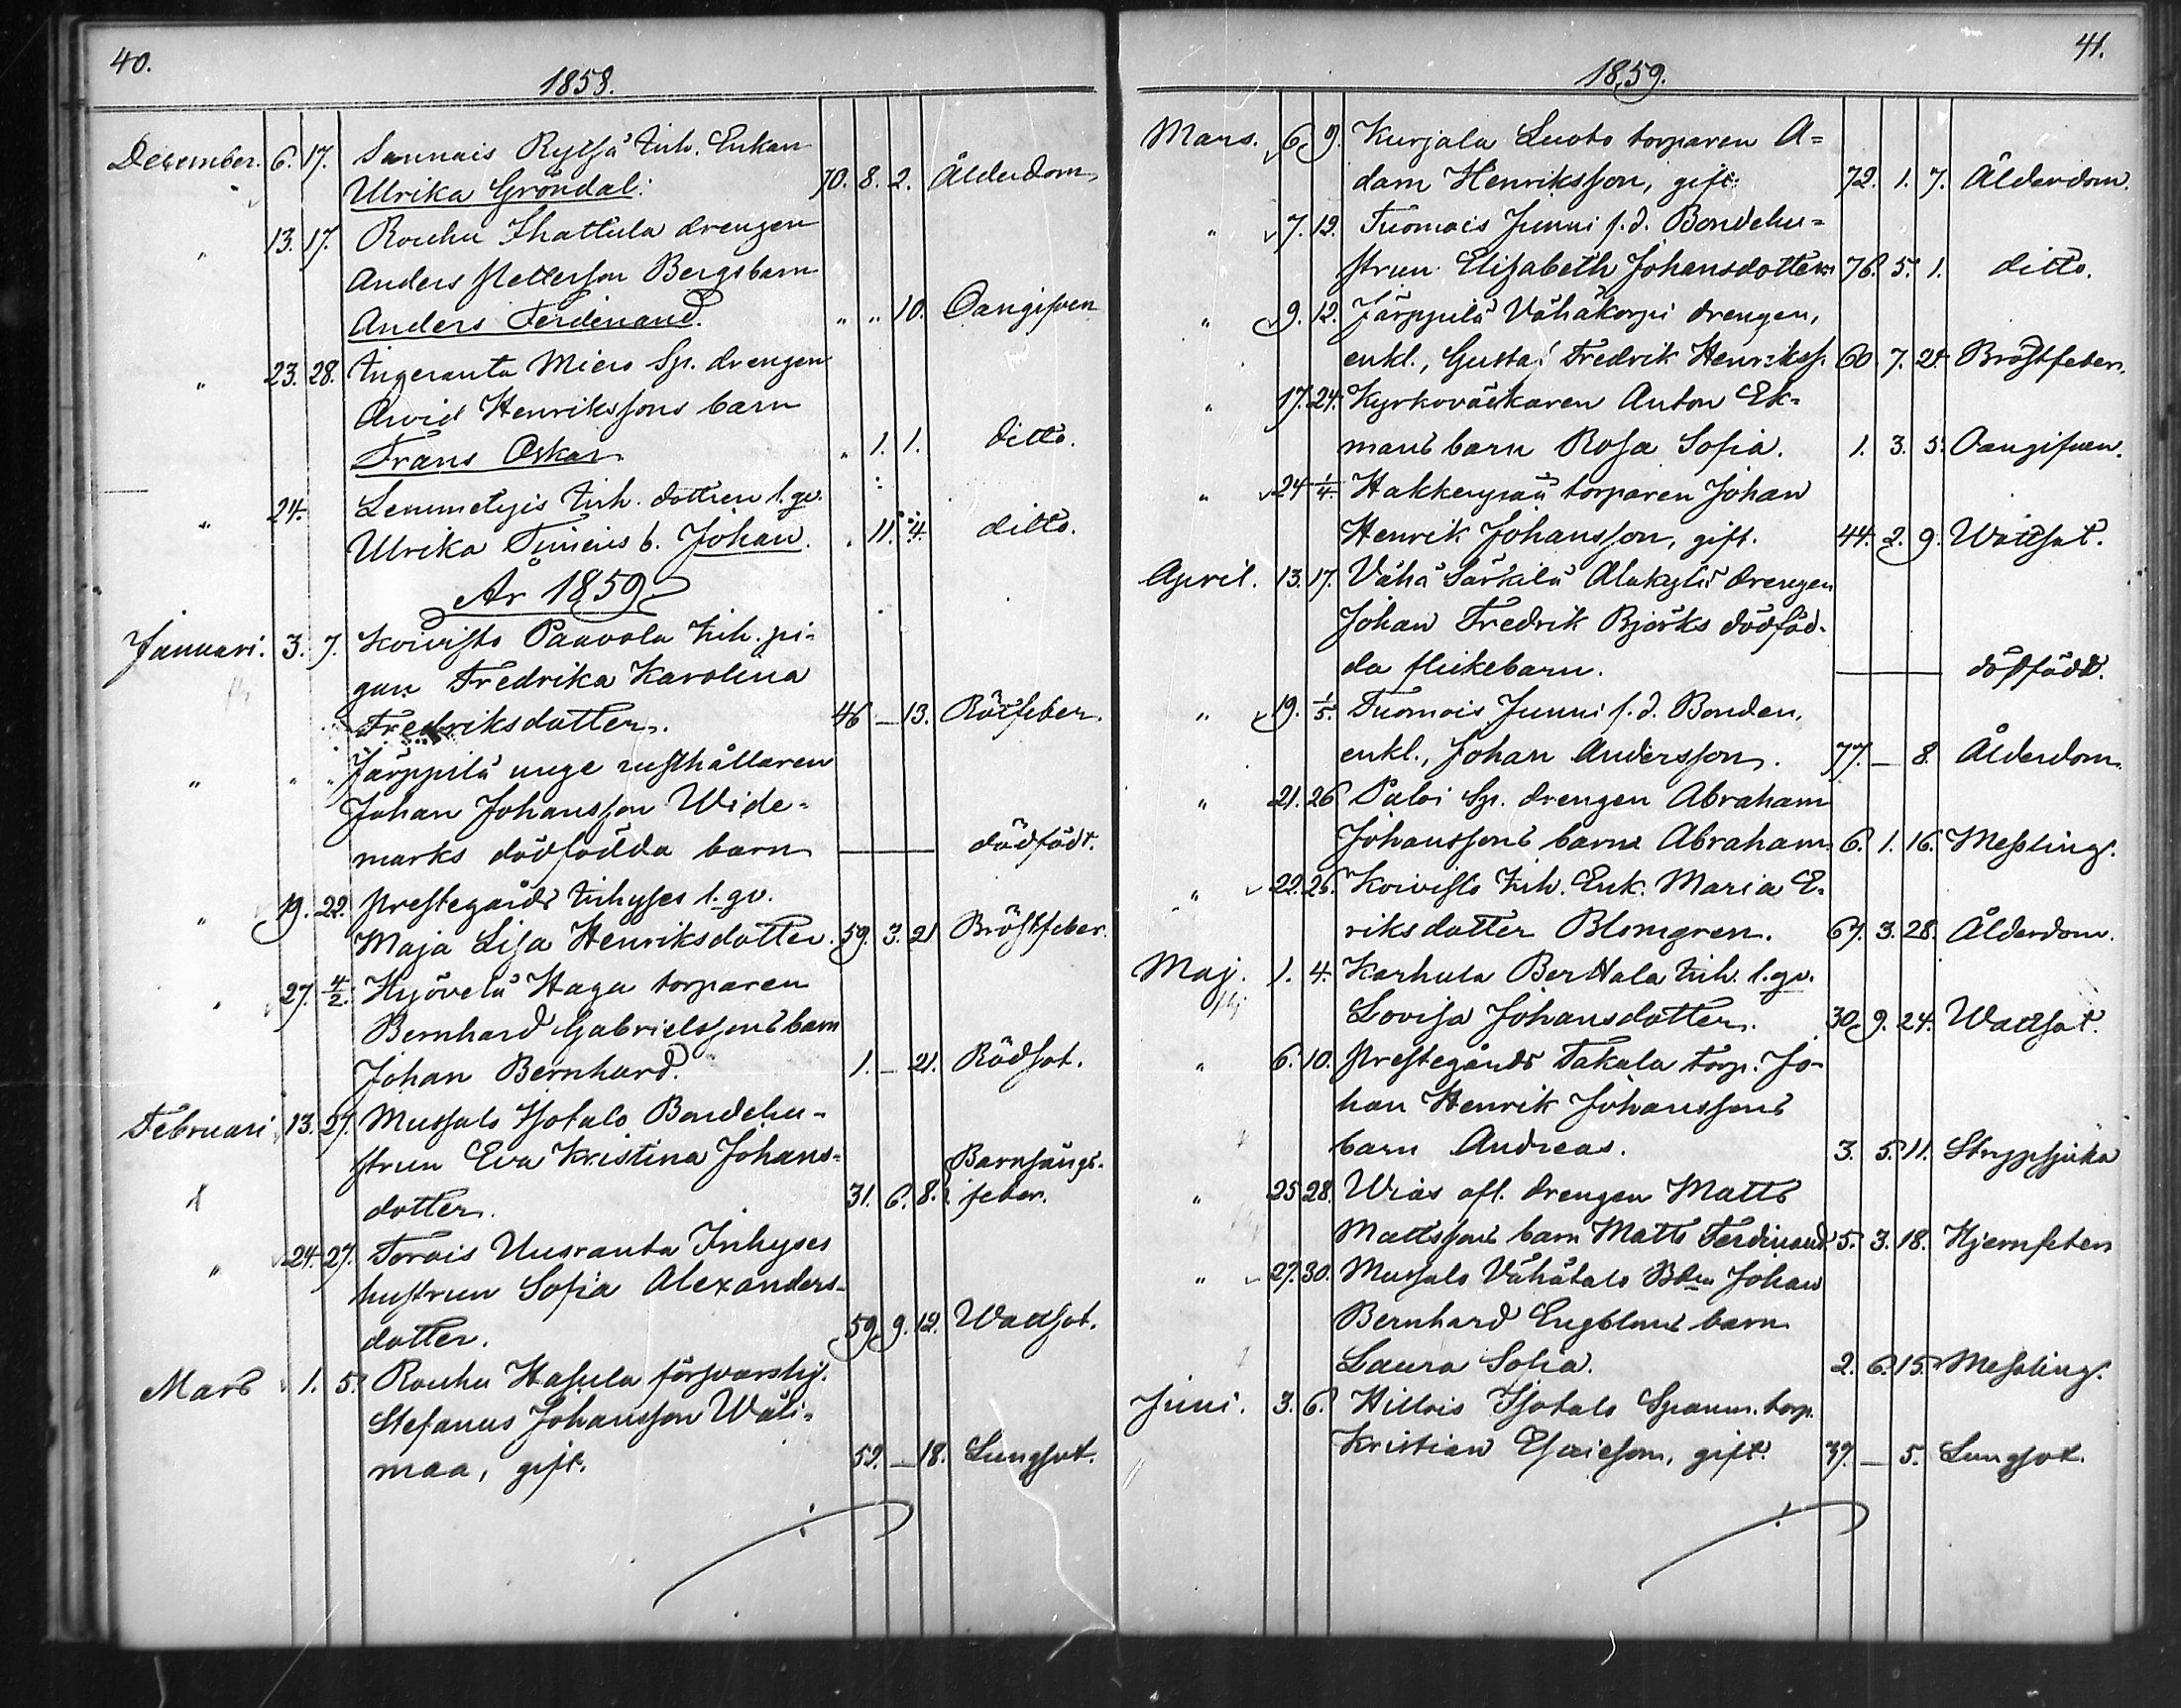 40.
1858.
December. 6. 17. Sannais Rytsä Inh. Enkan
Ulrika Gröndal. 70. 8. 2. Ålderdom
" 13. 17. Rouhu Ihattula drengen
Anders Petterson Bergs barn
Anders Ferdinand. " " 10. Oangifven
" 23. 28. Ingeranta Miero Sp. drengen
Arvid Henrikssons barn
Frans Oskar " 1. 1. ditto.
" 24. Lemmetyis Inh. dottren l. qv.
Ulrika b. Johan. " 11. 4. ditto.
År 1859
Januari. 3. 7. Koivisto Paavola Inh. pi-
gan Fredrika Karolina
Fredriksdotter. 46 — 13. Rötfeber.
" " " Järppilä unge rusthållaren
Johan Johansson Wide-
marks dödfödda barn — dödfödt.
" 19. 22. Prestegårds Inhyses l. qv.
Maja Lisa Henriksdotter. 59. 3. 21 Bröstfeber.
" 27. 4/2. Hyövelä Haga torparen
Bernhard Gabrielssons barn
Johan Bernhard. 1. — 21. Rödsot.
Februari 13. 27. Mussalo Isotalo Bondehu-
strun Eva Kristina Johans-
dotter. 31. 6. 8. Barnsängs-
feber.
" 24. 27. Torais Uusranta Inhyses
hustrun Sofia Alexanders-
dotter. 59. 9. 12. Wattsot.
Mars 1. 5. Rouhu Hasula försvarslig.
Stefanus Johansson Wäli-
maa, gift. 52. — 18. Lungsot.
41.
1859.
Mars. 6. 9. Kurjala Luoto torparen A-
dam Henriksson, gift. 72. 1. 7. Ålderdom.
" 7. 12. Tuomois Junni f. d. Bondehu-
strun Elisabeth Johansdotter 76. 5. 1. ditto.
" 9. 12. Järppilä Vähäkorpi drengen,
enkl., Gustaf Fredrik Henrikss. 60 7. 24. Bröstfeber.
" 17. 24. Kyrkoväktaren Anton Ek-
mans barn Rosa Sofia. 1. 3. 5. Oangifven.
" 24 1/4. Hakkenpää torparen Johan
Henrik Johansson, gift. 44. 2. 9. Wattsot.
April. 13. 17. Vähä Särkilä Alakylä drengen
Johan Fredrik Björks dödföd-
da flickebarn. — dödfödt.
" 19. 1/5. Tuomois Junni f. d. Bonden,
enkl., Johan Andersson. 77. — 8. Ålderdom.
" 21. 26. Paloi Sp. drengen Abraham
Johanssons barn Abraham 6. 1. 16. Messling.
" 22. 25. Koivisto Inh. Enk. Maria E-
riksdotter Blomgren. 67. 3. 28. Ålderdom.
Maj. 1. 4. Karhula Berttala Inh. l. qv.
Lovisa Johansdotter. 30. 9. 24. Wattsot.
" 6. 10. Prestegårds Takala torp. Jo-
han Henrik Johanssons
barn Andreas. 3. 5. 11. Strypsjuka
" 25 28. Wias afl. drengen Matts
Mattssons barn Matts Ferdinand. 5. 3. 18. Hjernfeber
" 27. 30. Mussalo Vähätalo Bden Johan
Bernhard Engbloms barn
Laura Sofia. 2. 6. 15. Messling.
Juni. 3. 6. Hillois Isotalo Spanm. torp.
Kristian Esaieson, gift. 37. — 5. Lungsot.